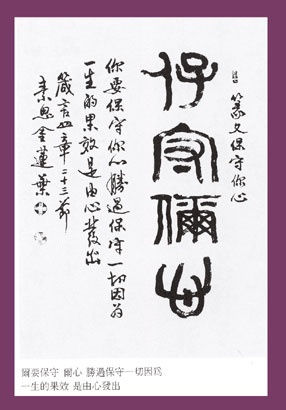 篆文保守你心
保守爾心
你要保守你心勝過保守一切因为
一生的果效是由心發出
箴言四章二十三節
素恩金蓮葉
爾要保守 爾心 勝過保守一切因爲
一生的果效 是由心發出